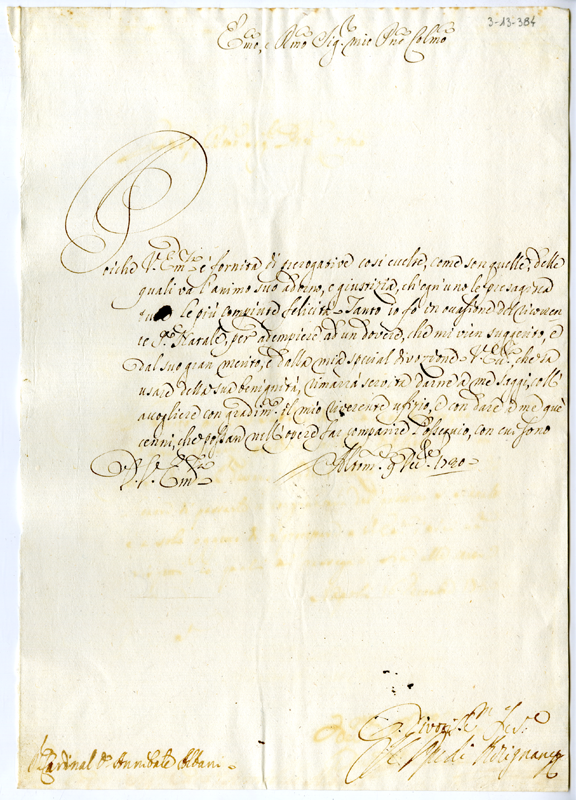 3-13-384
Emo, e Rmo Sigr mio Pne Colmo
Poiche V. Emza è fornita di prerogative così eccelse, come son quelle, delle
quali va l'animo suo adorno, è giustizia, ch'ogn'uno le presagisca
le più compiute felicità. Tanto io fò in occasione del
te S. Natale, per adempiere ad un dovere, che mi vien suggerito, e
dal suo gran merito, e dalla mia special divozione. V. Emza, che sa
usare della sua benignità, darne a me saggi, coll'
accogliere con gradimto il mio riverente ufizio, e con dare a me
cenni, che possan nell'opere far comparire l'ossequio, con cui sono
Di V. Emza
9 Dec. 1720
Cardinal D. Annibale Albani